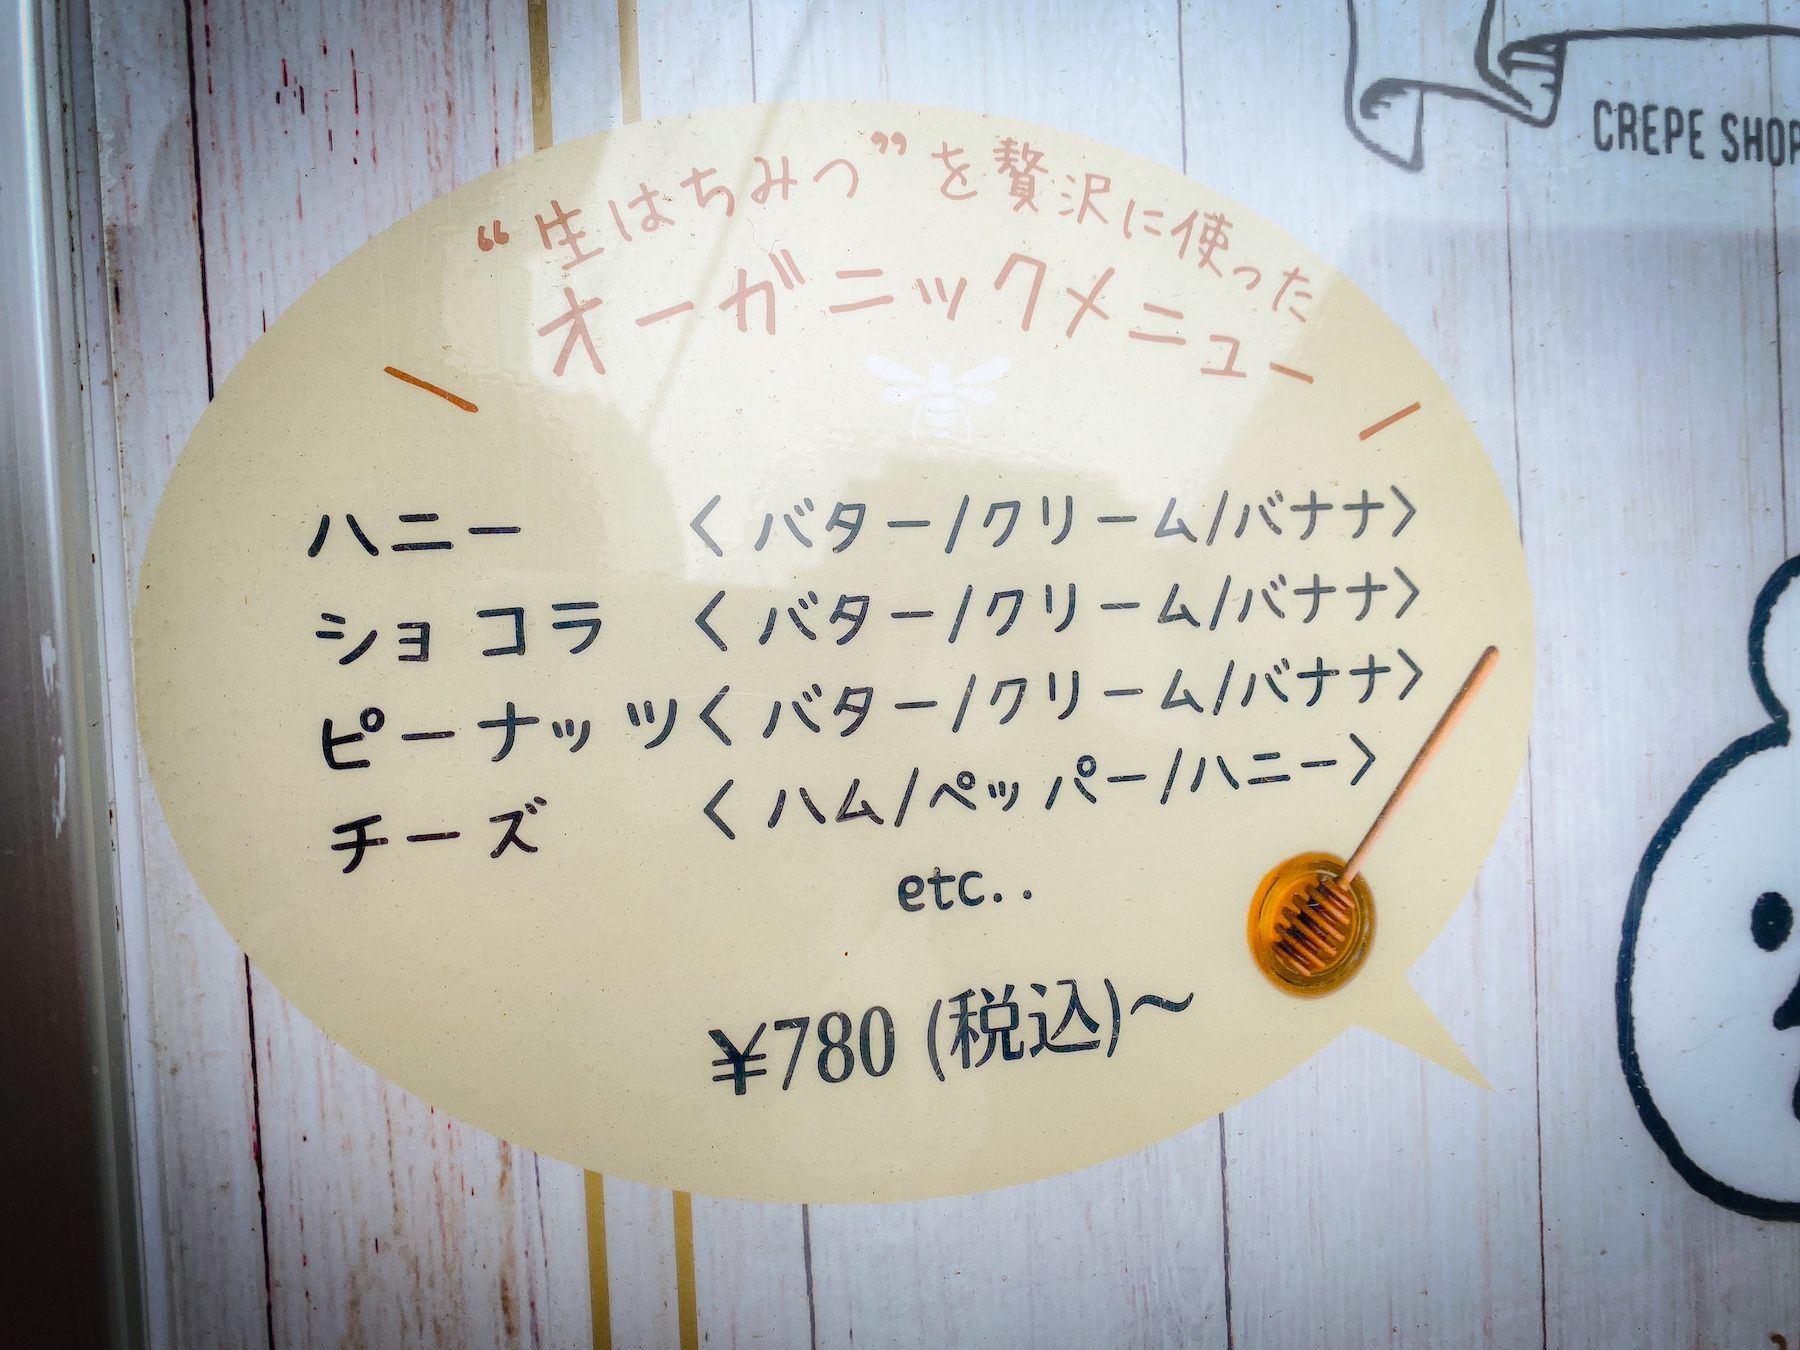 CREPE SHOP
“生はちみつ”を贅沢に使った
オーガニックメニュー
ハニー 〈バター/クリーム/バナナ〉
ショコラ 〈バター/クリーム/バナナ〉
ピーナッツ〈バター/クリーム/バナナ〉
チーズ 〈ハム/ペッパー/ハニー〉
etc..
¥780 (税込)～